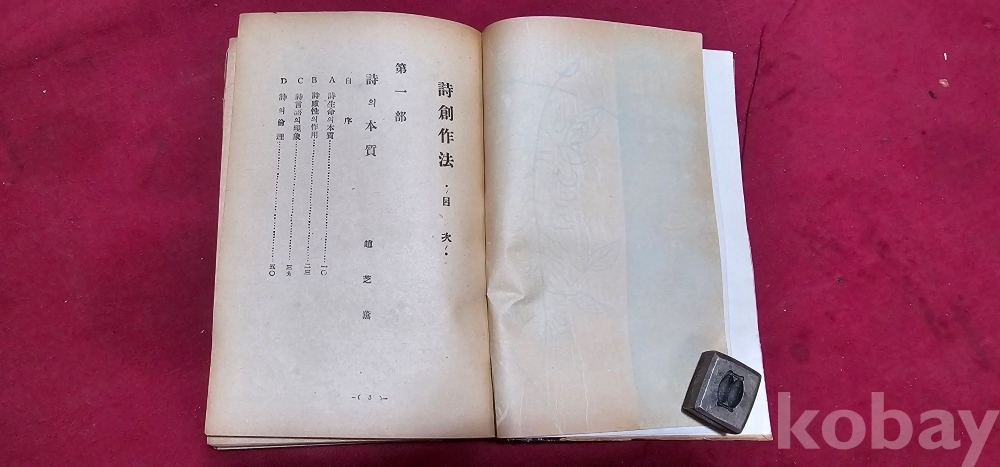 詩創作法 ・目 次・
第一部
詩의本質 趙芝薰
自序
A 詩生命의本質……………一〇
B 詩感性의作用……………二三
C 詩言語의現象……………三九
D 詩의倫理……………五〇
-( 3 )-
kobay